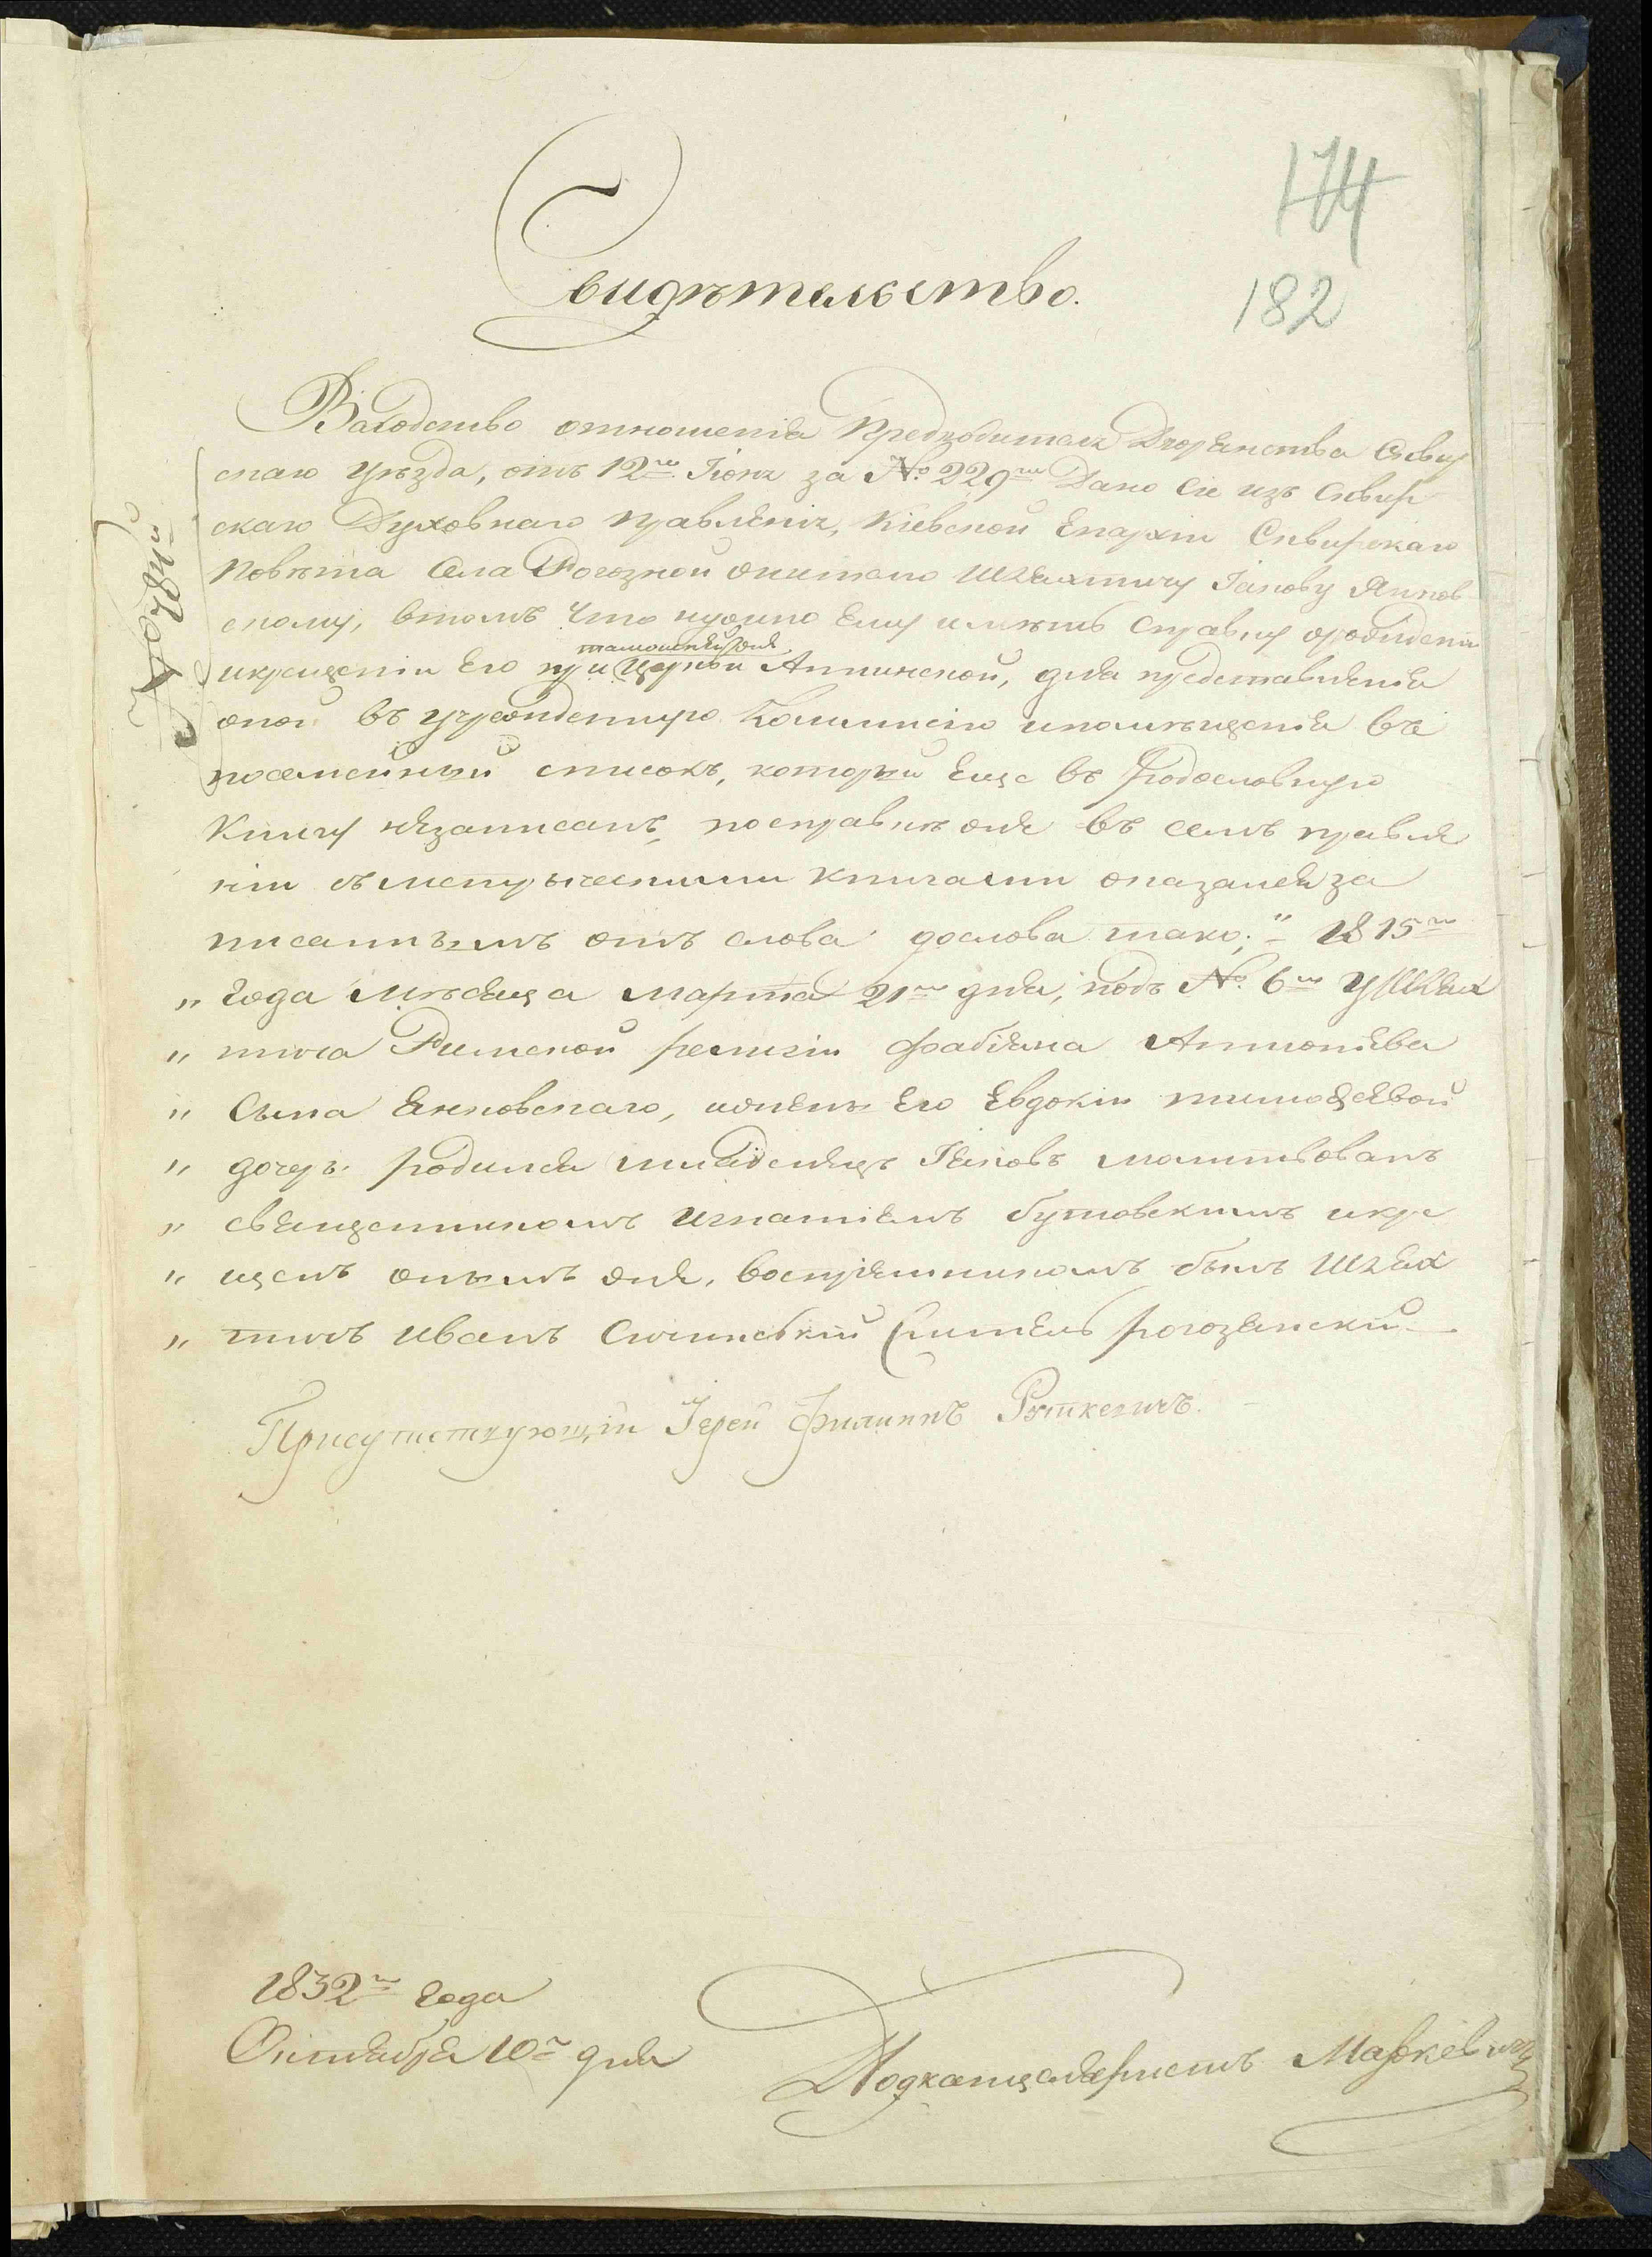 174
182
Свидѣтельство.
Вслѣдство отношенія Предводителя Дворянства Сквир
скаго уѣзда, отъ 12го Іюня за №. 229м Дано Сіе изъ Сквир
скаго Духовнаго правленія, Кіевской Епархіи Сквирскаго
повѣта Села Рогозной жителю Шляхтичу Іакову Янков
скому, втомъ Что нужно Ему имѣть Справку орождении
икрещеніи Его при Церкви Аннинской, для представленія
оной въ учрежденную Коммисію ипомѣщенія въ
посемейный списокъ, который Еще въ родословную
Книгу незаписанъ, посправкѣ же въ семъ правле
ніи съ метрическими книгами оказался за
писаннымъ отъ слова дослова тако: „ 1815го
„ Года Мѣсяца Марта 21го дня, подъ №. 6м У Шлях
„ тича Римской религіи Фабіяна Антоніева
„ Сына Янковскаго, ижены Его Евдокіи тимоѳеевой
„ дочеры родился младенецъ Іаковъ молитвованъ
„ священникомъ Игнатіемъ Бутовскимъ икре
„ щенъ онымъ же, воспріемникомъ былъ Шлях
„ тичъ Иванъ житель рогозянскій
Присутствующій Іерей Филиппъ Руткевичъ.
1832го Года
Октября 10го дня
Подканцеляристъ Маркевичъ